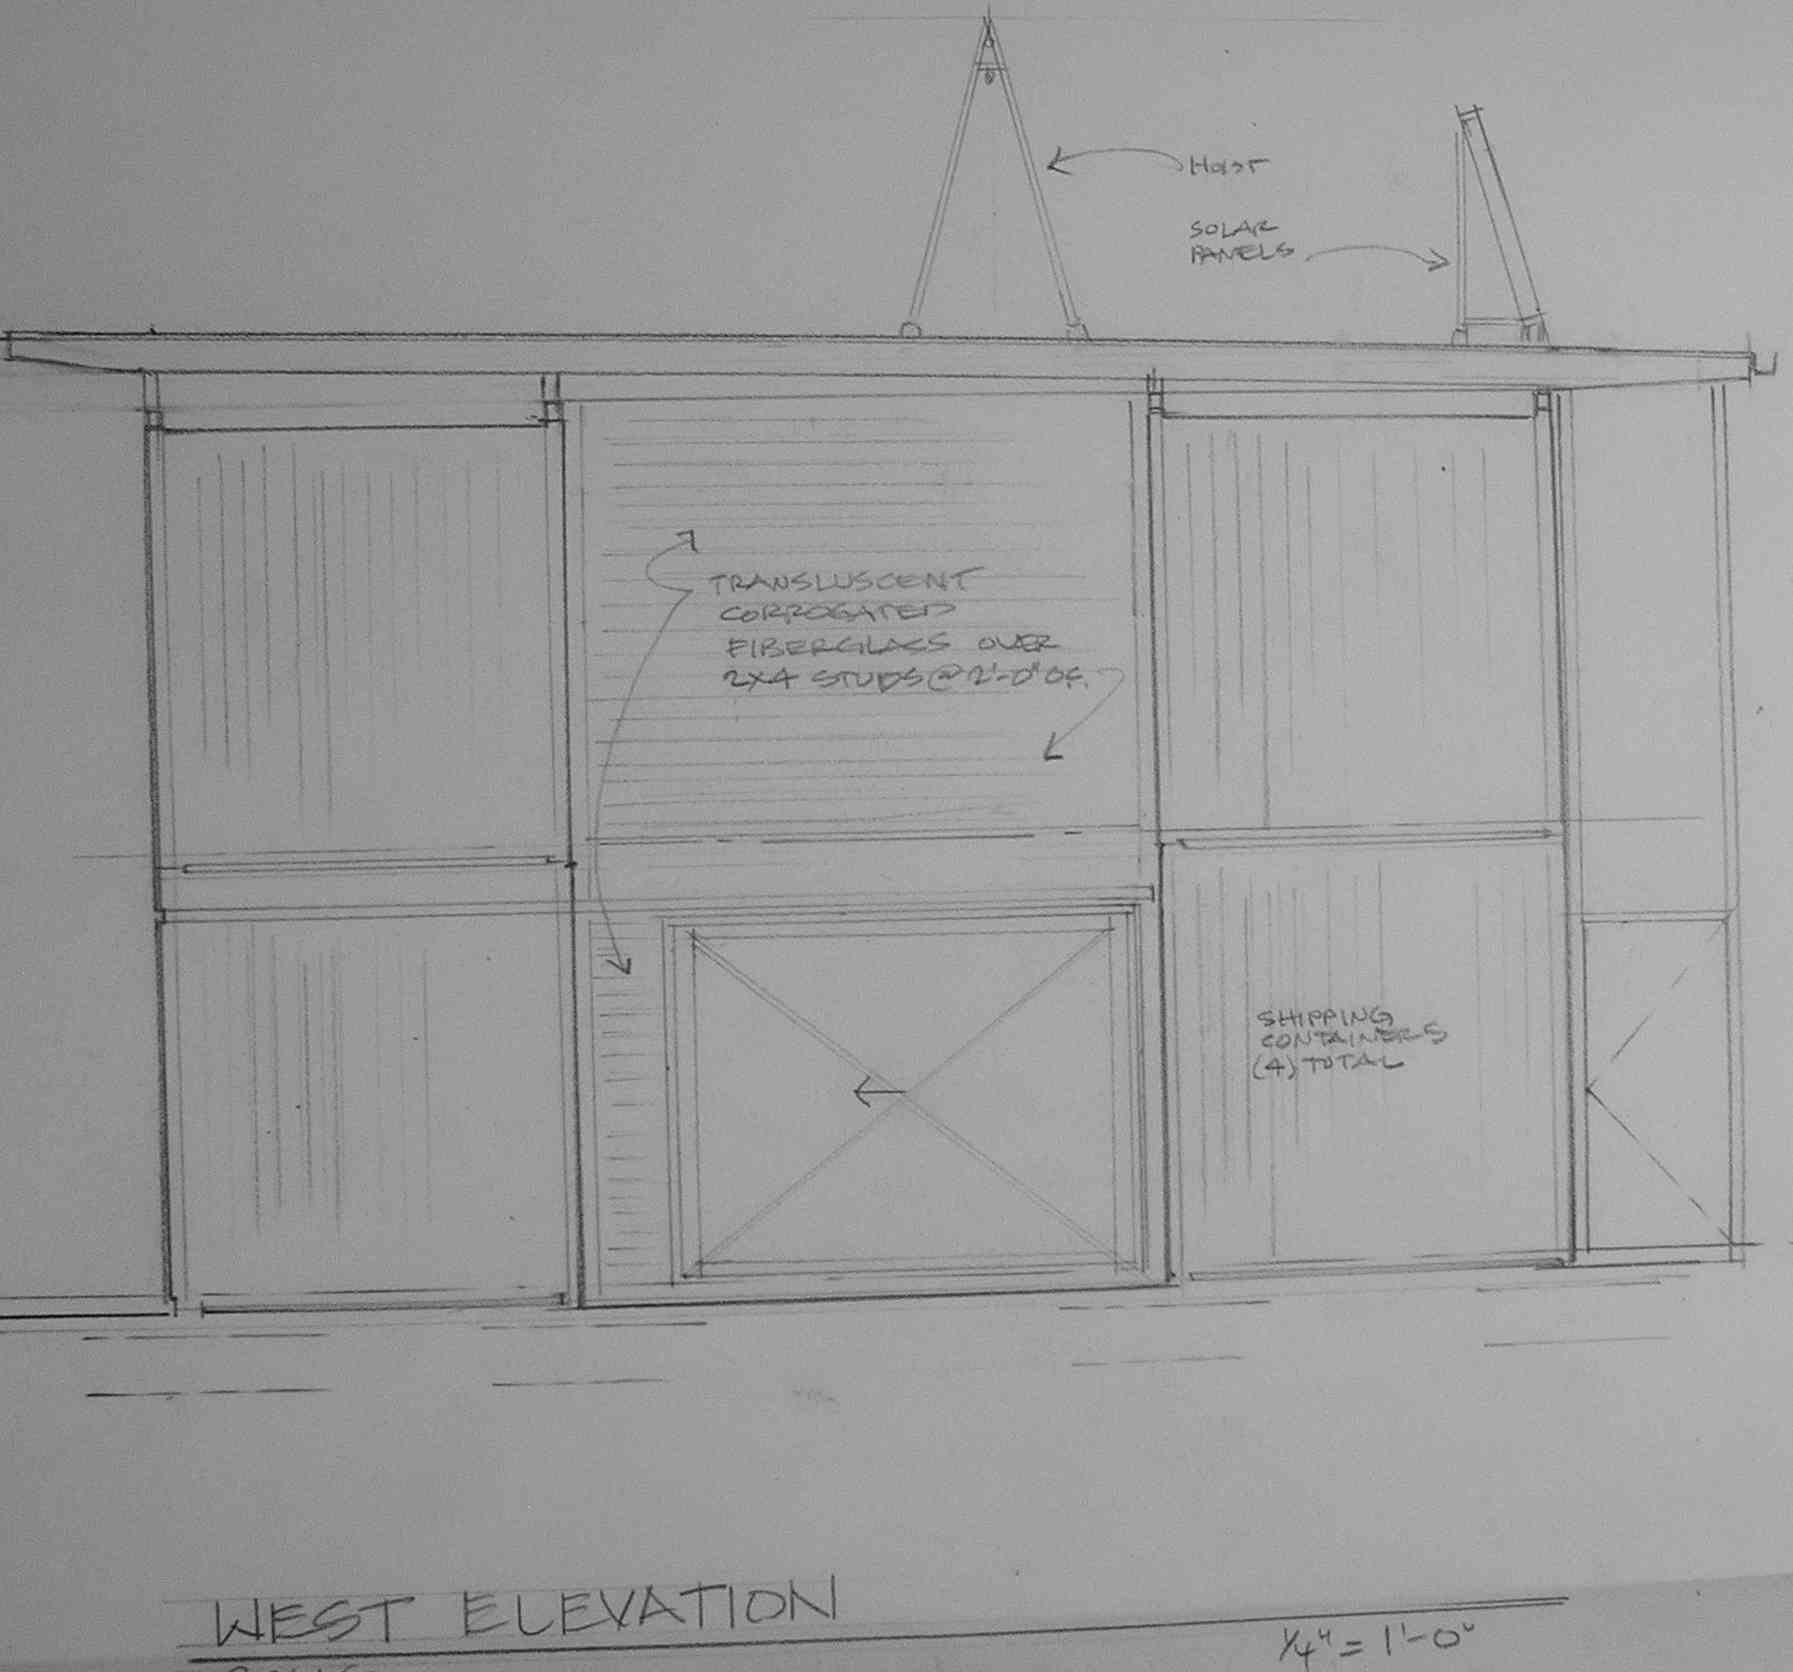 HOIST
SOLAR
PANELS
TRANSLUSCENT
CORROGATED
FIBERGLASS OVER
2X4 STUDS @ 2'-0" O.C.
SHIPPING
CONTAINERS
(4) TOTAL
WEST ELEVATION
1/4" = 1'-0"